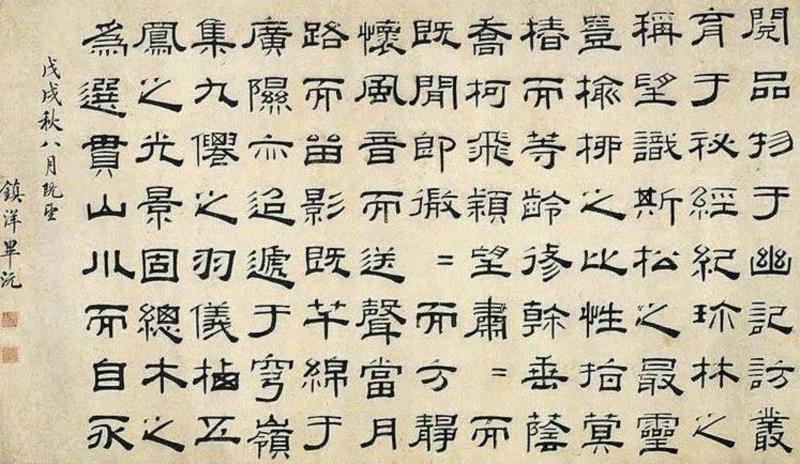 閱品物于幽記訪叢
育于秘經紀珎林之
稱望識斯松之最靈
豈榆栁之比性指蓂
椿而等齡修幹垂蔭
喬柯飛穎望肅=而
既閒即微=而方静
懷風音而送聲當月
路而畱影既芊綿于
廣隰亦迢遞于穹嶺
集九僊之羽儀栖五
鳳之光景固總木之
為選貫山川而自永
戊戌秋八月既望
鎮洋畢沅